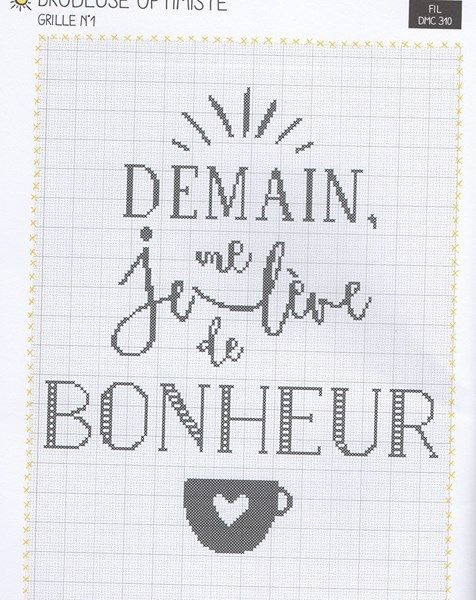 BRODEUSE OPTIMISTE
GRILLE N°1
FIL
DMC 310
DEMAIN,
je me lève
de
BONHEUR